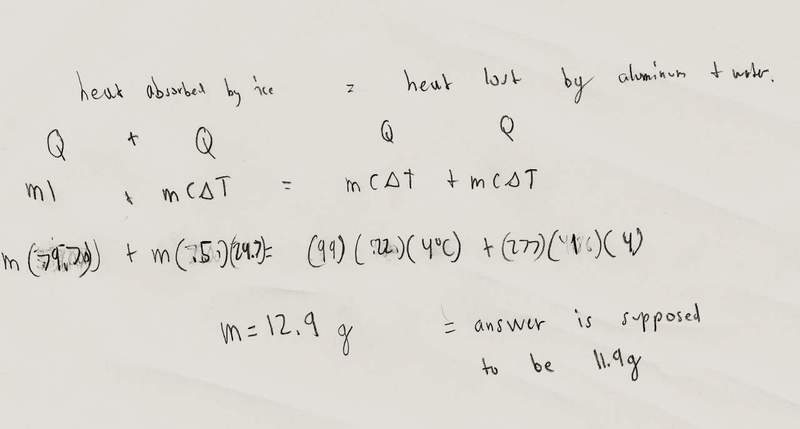 heat absorbed by ice = heat lost by aluminum + water.
Q + Q Q Q
ml + mCΔT = mCΔt + mCΔT
m(79.70) + m(.5)(29.7)= (99)(.22)(4°C) + (277)( )(4)
m=12.9 g = answer is supposed
to be 11.9g